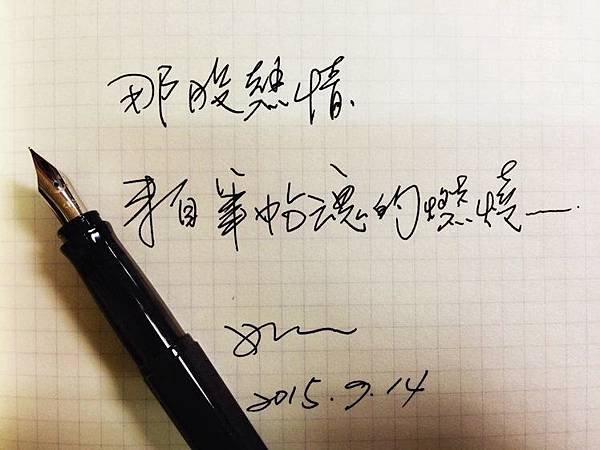 那股熱情
來自筆中的魂的燃燒
2015.9.14